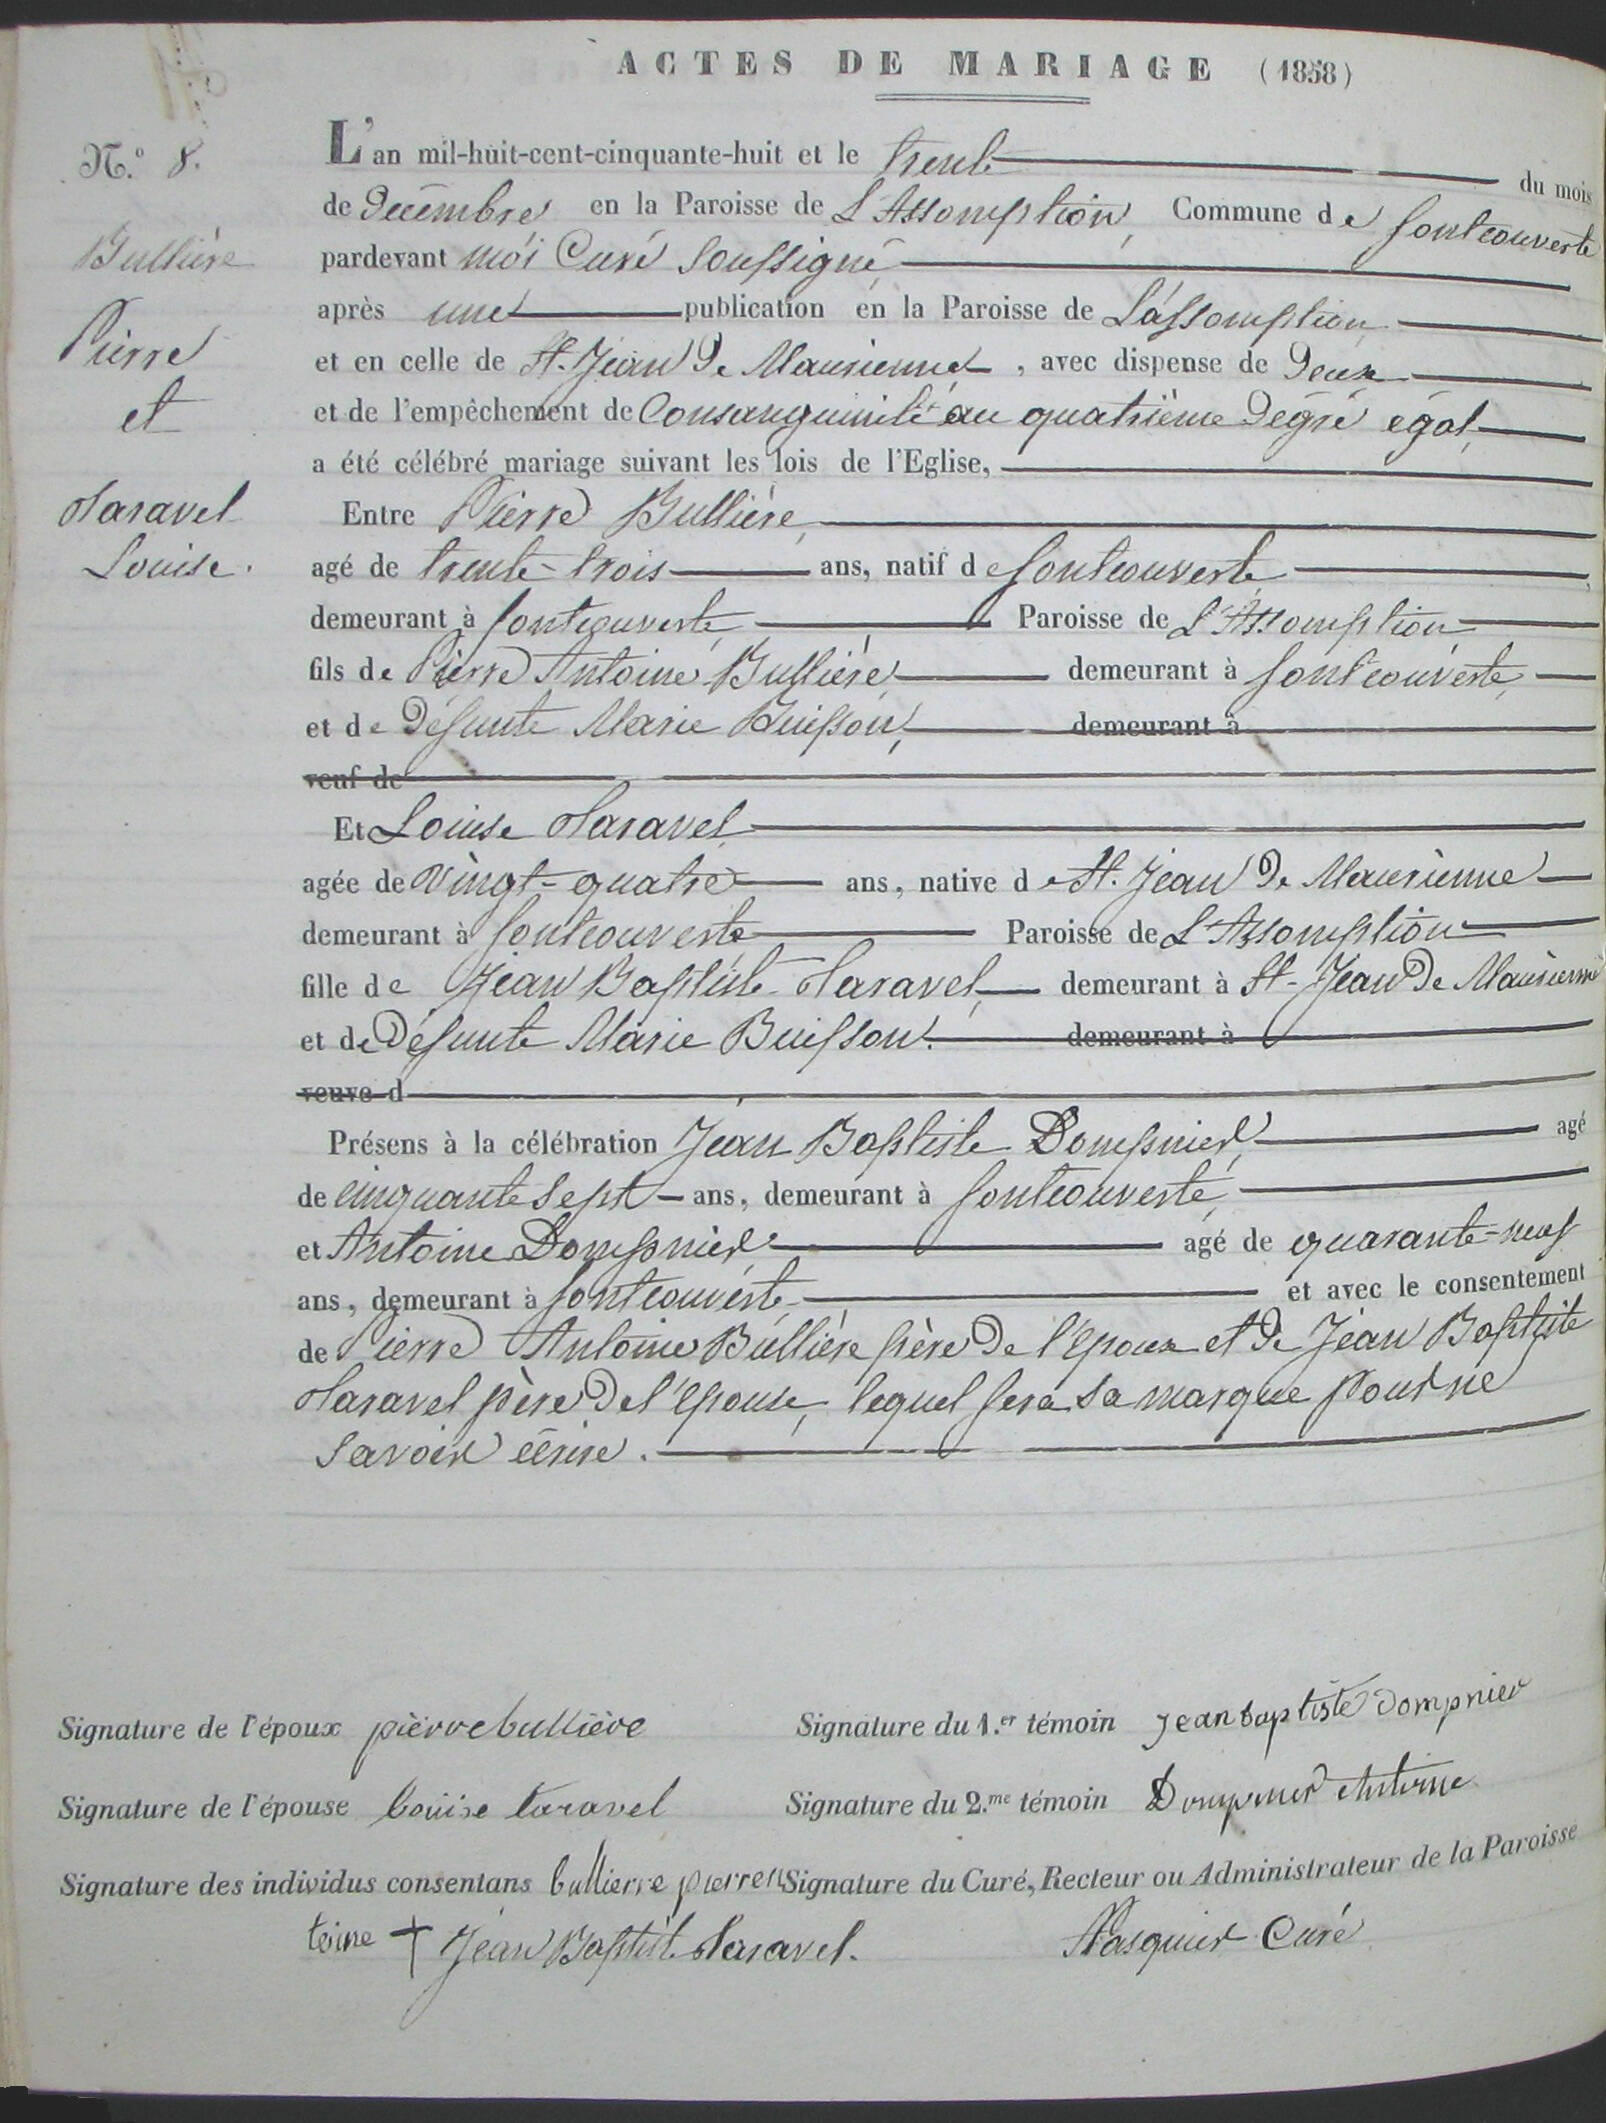 ACTES DE MARIAGE (1858)
N.o 8.
Bullière
Pierre
et
Taravel
Louise.
L'an mil-huit-cent-cinquante-huit et le trente du mois
de Décembre en la Paroisse de L'Assomption, Commune de fontcouverte
pardevant moi Curé soussigné
après une publication en la Paroisse de L'assomption
et en celle de St. Jean De Maurienne, avec dispense de Deux
et de l'empêchement de Consanguinité au quatrième Dégré égal,
a été célébré mariage suivant les lois de l'Eglise,
Entre Pierre Bullière,
agé de trente-trois ans, natif de fontcouverte
demeurant à fontcouverte, Paroisse de L'Assomption
fils de Pierre Antoine Bullière, demeurant à fontcouverte,
et de Défunte Marie Buisson, demeurant à
veuf de
Et Louise Taravel
agée de vingt-quatre ans, native de St. Jean De Maurienne
demeurant à fontcouverte Paroisse de L'Assomption
fille de Jean Baptiste Taravel, demeurant à St-Jean De Maurienne
et de Défunte Marie Buisson. demeurant à
veuve d
Présens à la célébration Jean Baptiste Dompnier, agé
de cinquante sept ans, demeurant à fontcouverte,
et Antoine Dompnier agé de quarante-neuf
ans, demeurant à fontcouverte et avec le consentement
de Pierre Antoine Bullière père De l'Epoux et De Jean Baptiste
Taravel père De l'Epouse, lequel fera sa marque pour ne
savoir écrire.
Signature de l'époux pièrre bullière Signature du 1.er témoin jean baptiste dompnier
Signature de l'épouse louise taravel Signature du 2.me témoin Dompnier Antoine
Signature des individus consentans bullierre pierre n Signature du Curé, Recteur ou Administrateur de la Paroisse
toine + Jean Baptiste Taravel. Pasquier Curé